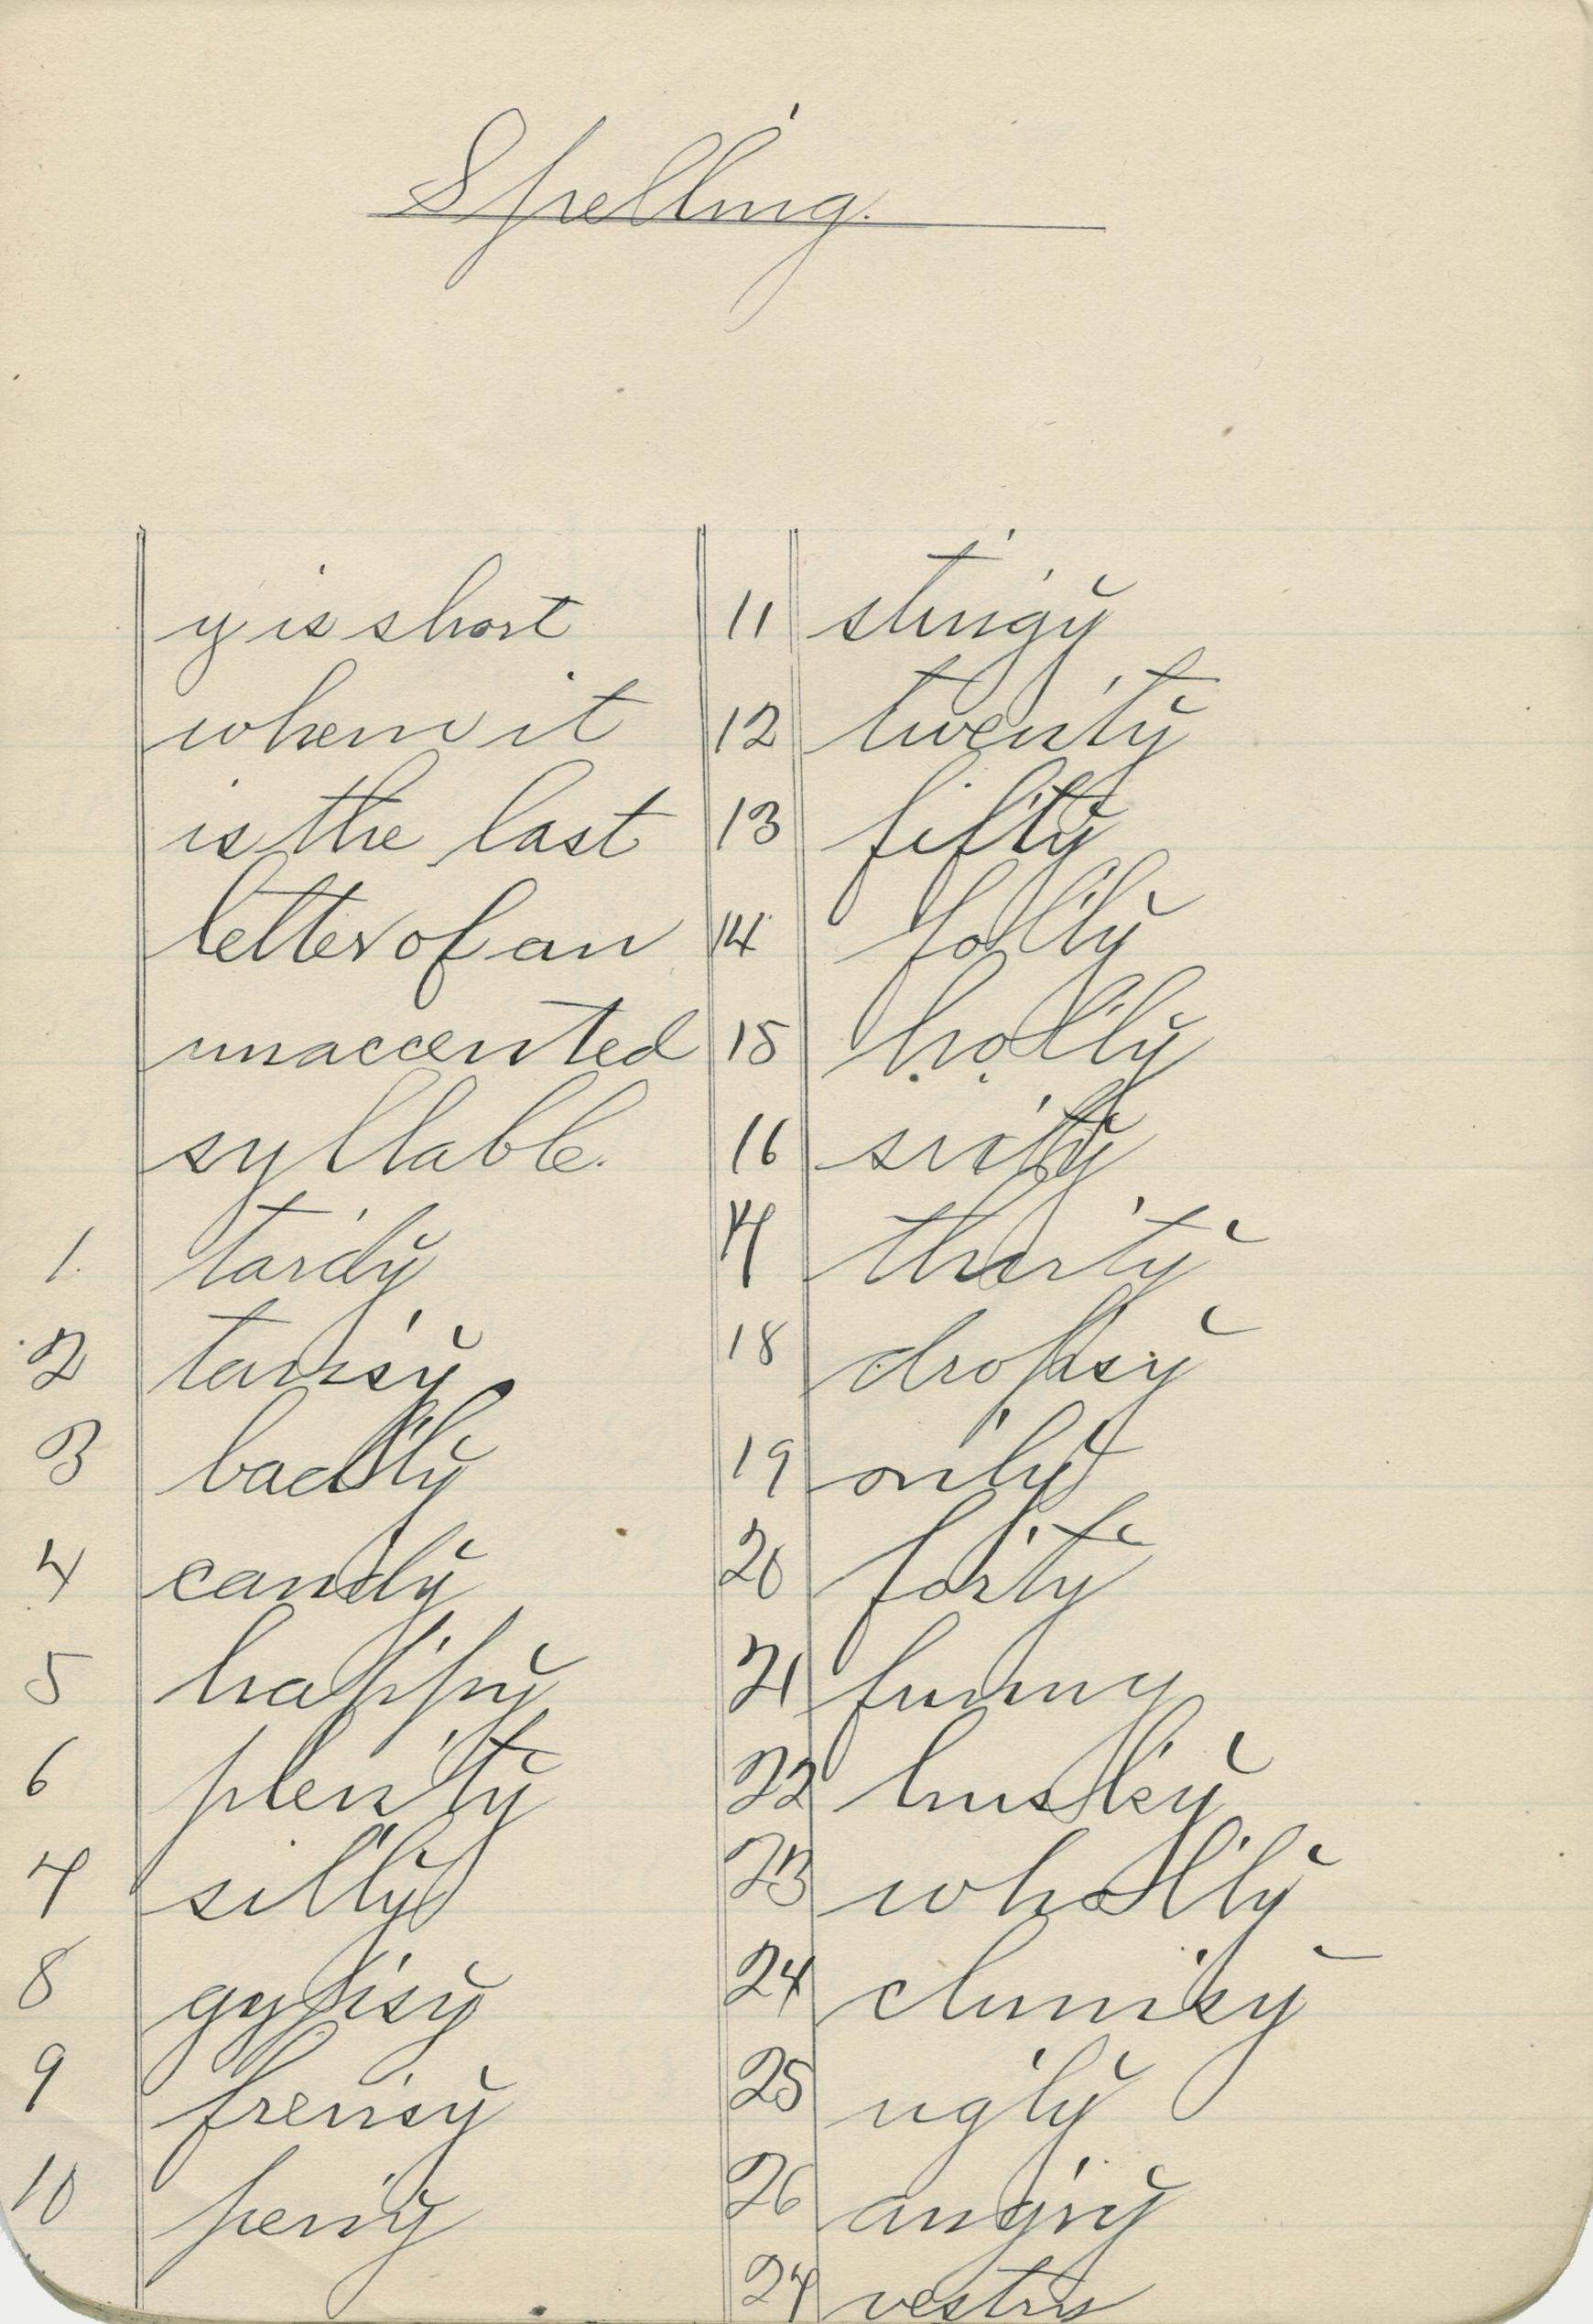 Spelling.
y is short
when it
is the last
letter of an
unaccented
syllable.
1. tar'dy̆
2 tan'sy̆
3 bad'ly̆
4 can'dy̆
5 hap'py̆
6 plen'ty̆
7 sil'ly̆
8 gyp'sy̆
9 fren'sy̆
10 pen'y̆
11 stin'gy̆
12 twen'ty̆
13 fif'ty̆
14 fol'ly̆
15 hol'ly̆
16 six'ty̆
17 thir'ty̆
18 drop'sy̆
19 on'ly̆
20 for'ty̆
21 funny
22 hus'ky̆
23 whol'ly̆
24 clum'sy̆
25 ug'ly̆
26 an'gry̆
27